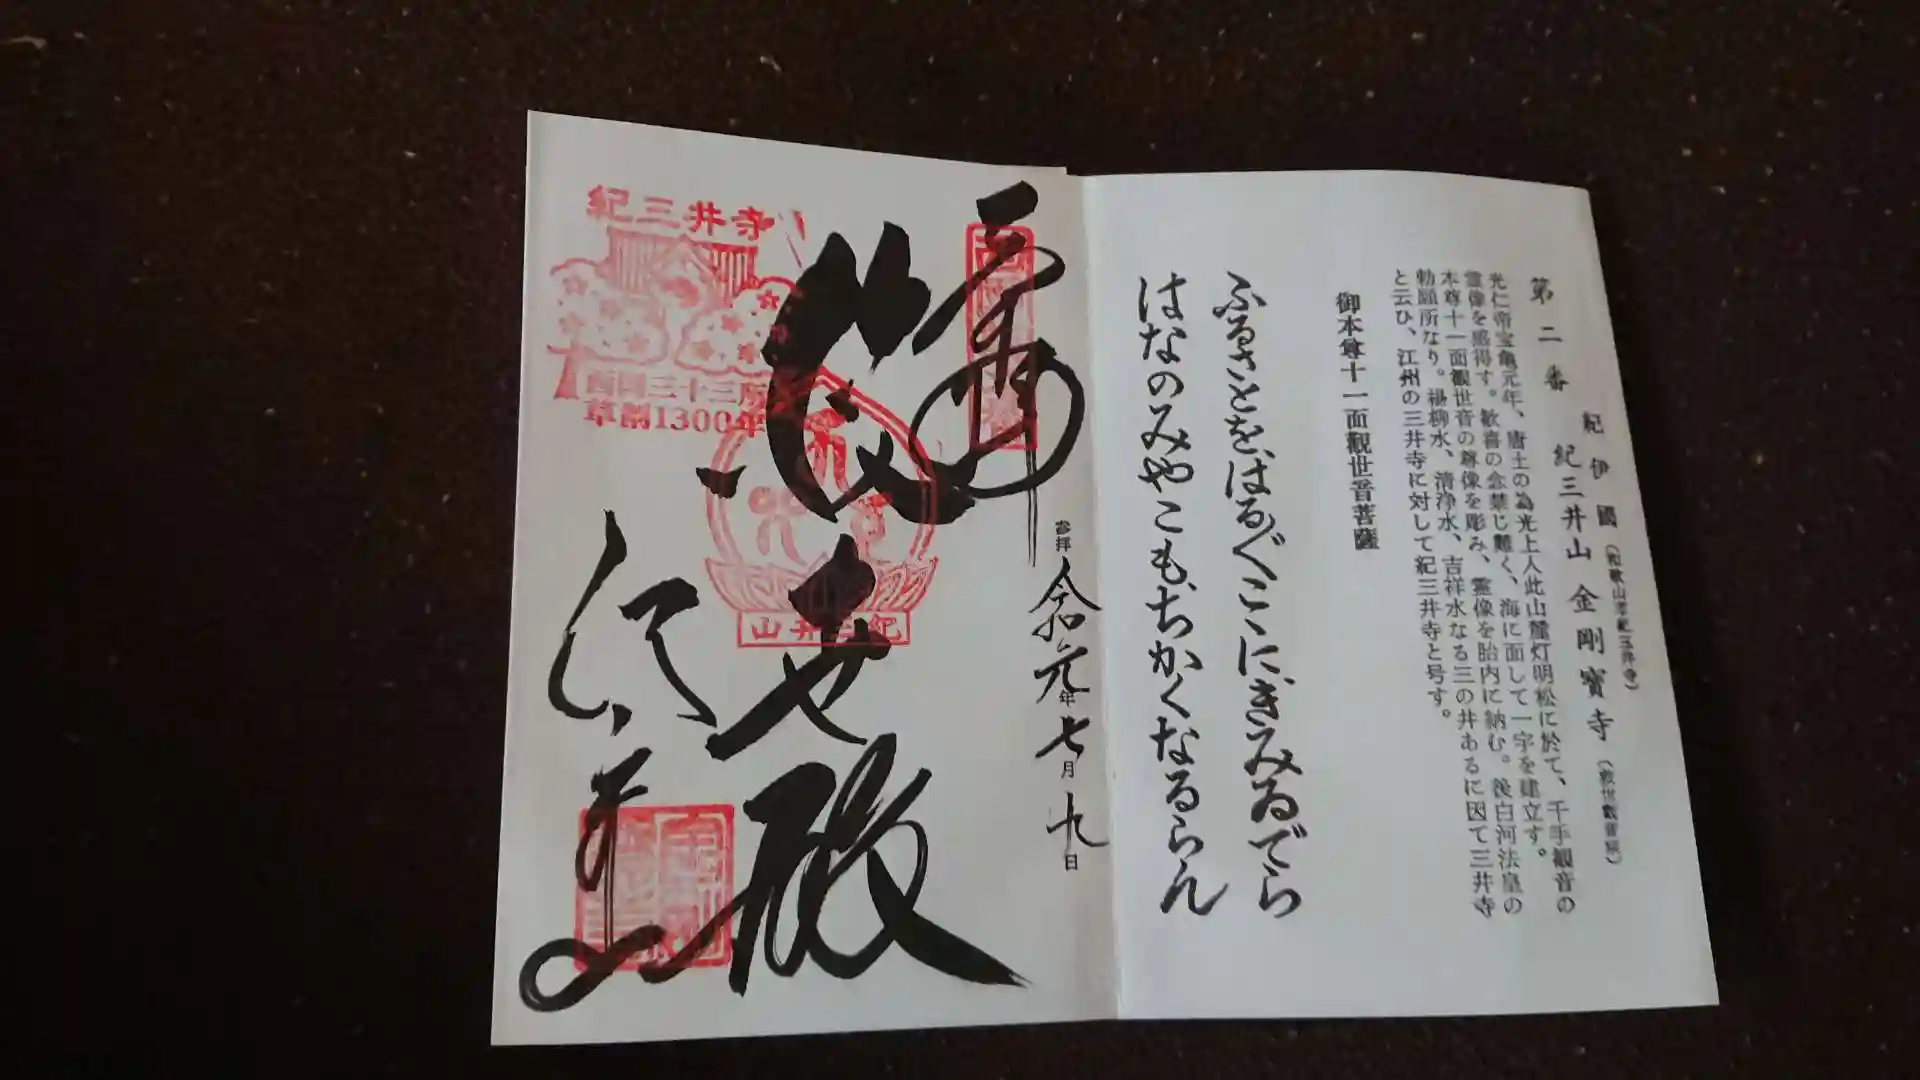 第二番
紀伊國（和歌山市紀三井寺）
紀三井山 金剛寶寺（救世觀音宗）
光仁帝宝亀元年、唐土の為光上人此山麓灯明松に於て、千手観音の
霊像を感得す。歓喜の念禁じ難く、海に面して一宇を建立す。
本尊十一面観世音の尊像を彫み、霊像を胎内に納む。後白河法皇の
勅願所なり。楊柳水、清浄水、吉祥水なる三の井あるに因て三井寺
と云ひ、江州の三井寺に対して紀三井寺と号す。
御本尊十一面觀世音菩薩
ふるさとをはる〲こゝにきみゐでら
はなのみやこもちかくなるらん
奉拝 令和元年七月九日
救世殿
紀三井寺
西国三十三所
草創1300年
紀三井山